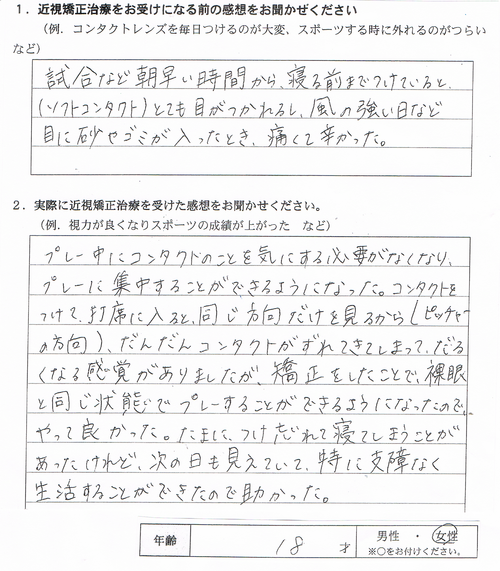 １．近視矯正治療をお受けになる前の感想をお聞かせください
（例．コンタクトレンズを毎日つけるのが大変、スポーツする時に外れるのがつらい
など）
試合など朝早い時間から、寝る前までつけていると、
(ソフトコンタクト)とても目がつかれるし、風の強い日など
目に砂やゴミが入ったとき、痛くて辛かった。
２．実際に近視矯正治療を受けた感想をお聞かせください。
（例．視力が良くなりスポーツの成績が上がった　など）
プレー中にコンタクトのことを気にする必要がなくなり、
プレーに集中することができるようになった。コンタクトを
つけて、打席に入ると、同じ方向だけを見るから(ピッチャー
の方向)、だんだんコンタクトがずれてきてしまって、だる
くなる感覚がありましたが、矯正をしたことで、裸眼
と同じ状態でプレーすることができるようになったので、
やって良かった。たまに、つけ忘れて寝てしまうことが
あったけれど、次の日も見えていて、特に支障なく
生活することができたので助かった。
年齢　18　才　男性・女性
※○をお付けください。